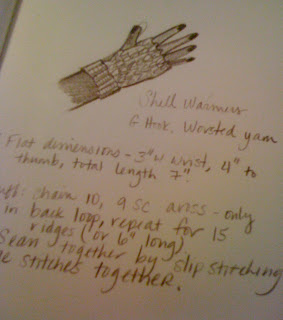 Shell Warmers
G Hook, Worsted yarn
Flat dimensions - 3" w wrist, 4" to
thumb, total length 7"
chain 10, 9 sc across - only
in back loop, repeat for 15
ridges (or 6" long)
Seam together by slip stitching
stitches together.